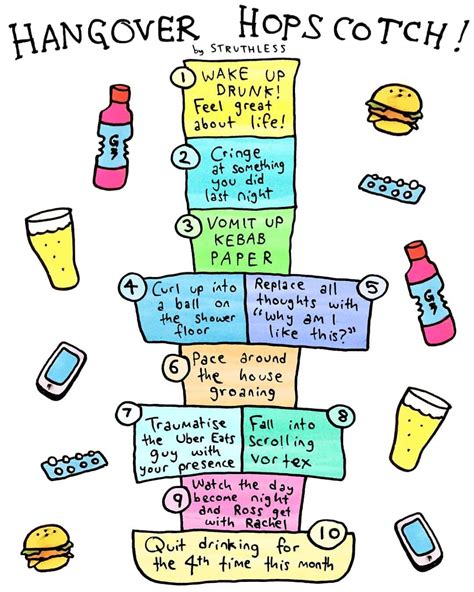 HANGOVER HOPSCOTCH!
by STRUTHLESS
1 WAKE UP
DRUNK!
Feel great
about life!
2 Cringe
at something
you did
last night
3 VOMIT UP
KEBAB
PAPER
4 Curl up into
a ball on
the shower
floor
Replace all 5
thoughts with
"why am I
like this?"
6 Pace around
the house
groaning
7 Traumatise
the Uber Eats
guy with
your presence
8
Fall into
scrolling
vortex
9 Watch the day
become night
and Ross get
with Rachel
10
Quit drinking for
the 4th time this month